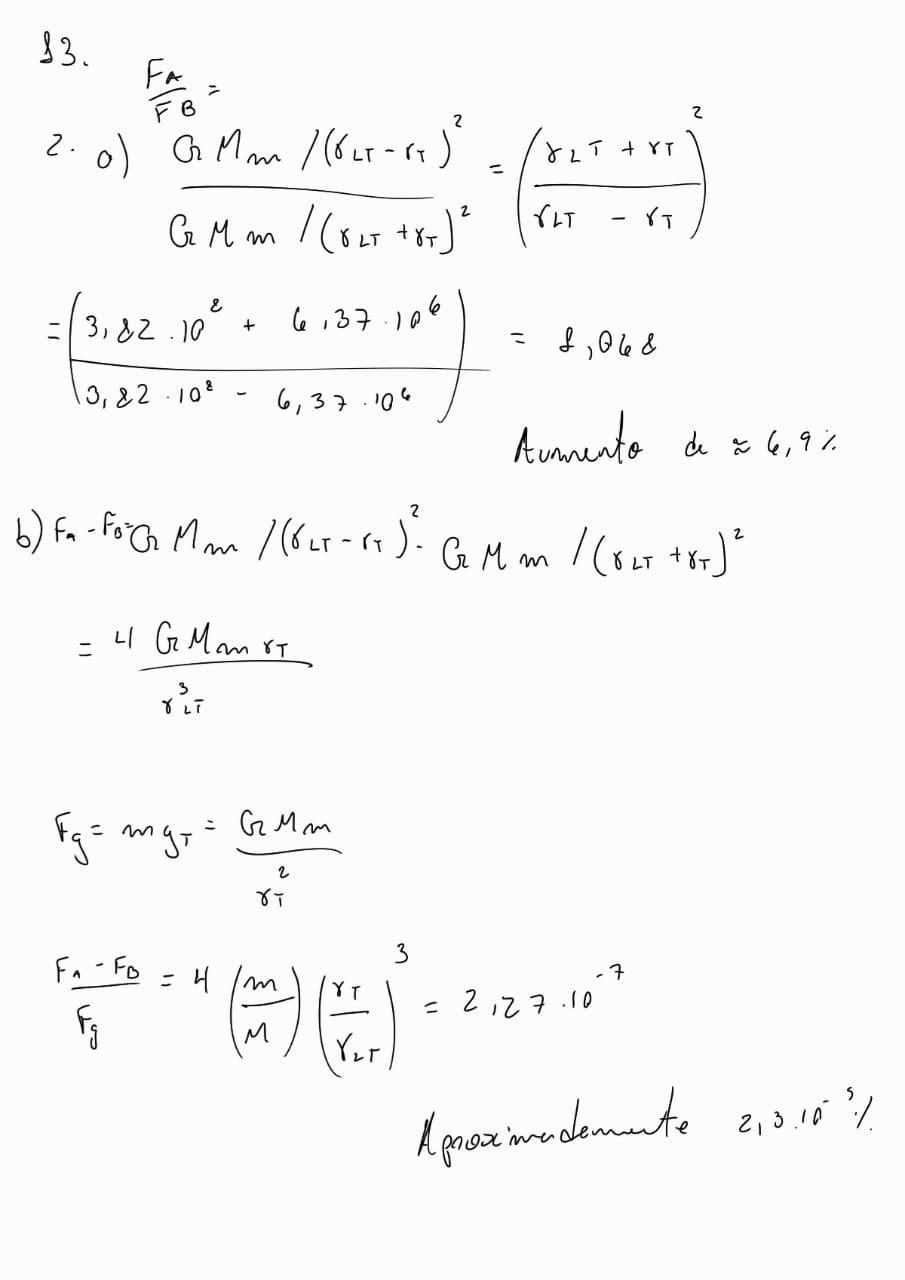 13.
FA/FB =
2. a) G M m /(r LT - r T)² / G M m /(r LT + r T)² = (r LT + r T / r LT - r T)²
= (3,82 . 10⁸ + 6,37 . 10⁶ / 3,82 . 10⁸ - 6,37 . 10⁶) = 1,068
Aumento de ≈ 6,9 %
b) FA - FB = G M m /(r LT - r T)² - G M m /(r LT + r T)²
= 4 G M m r T / r³ LT
Fg = m gT = G M m / r² T
FA - FB / Fg = 4 (m / M) (r T / r LT)³ = 2,27 . 10⁻⁷
Aproximadamente 2,3 . 10⁻⁵ %